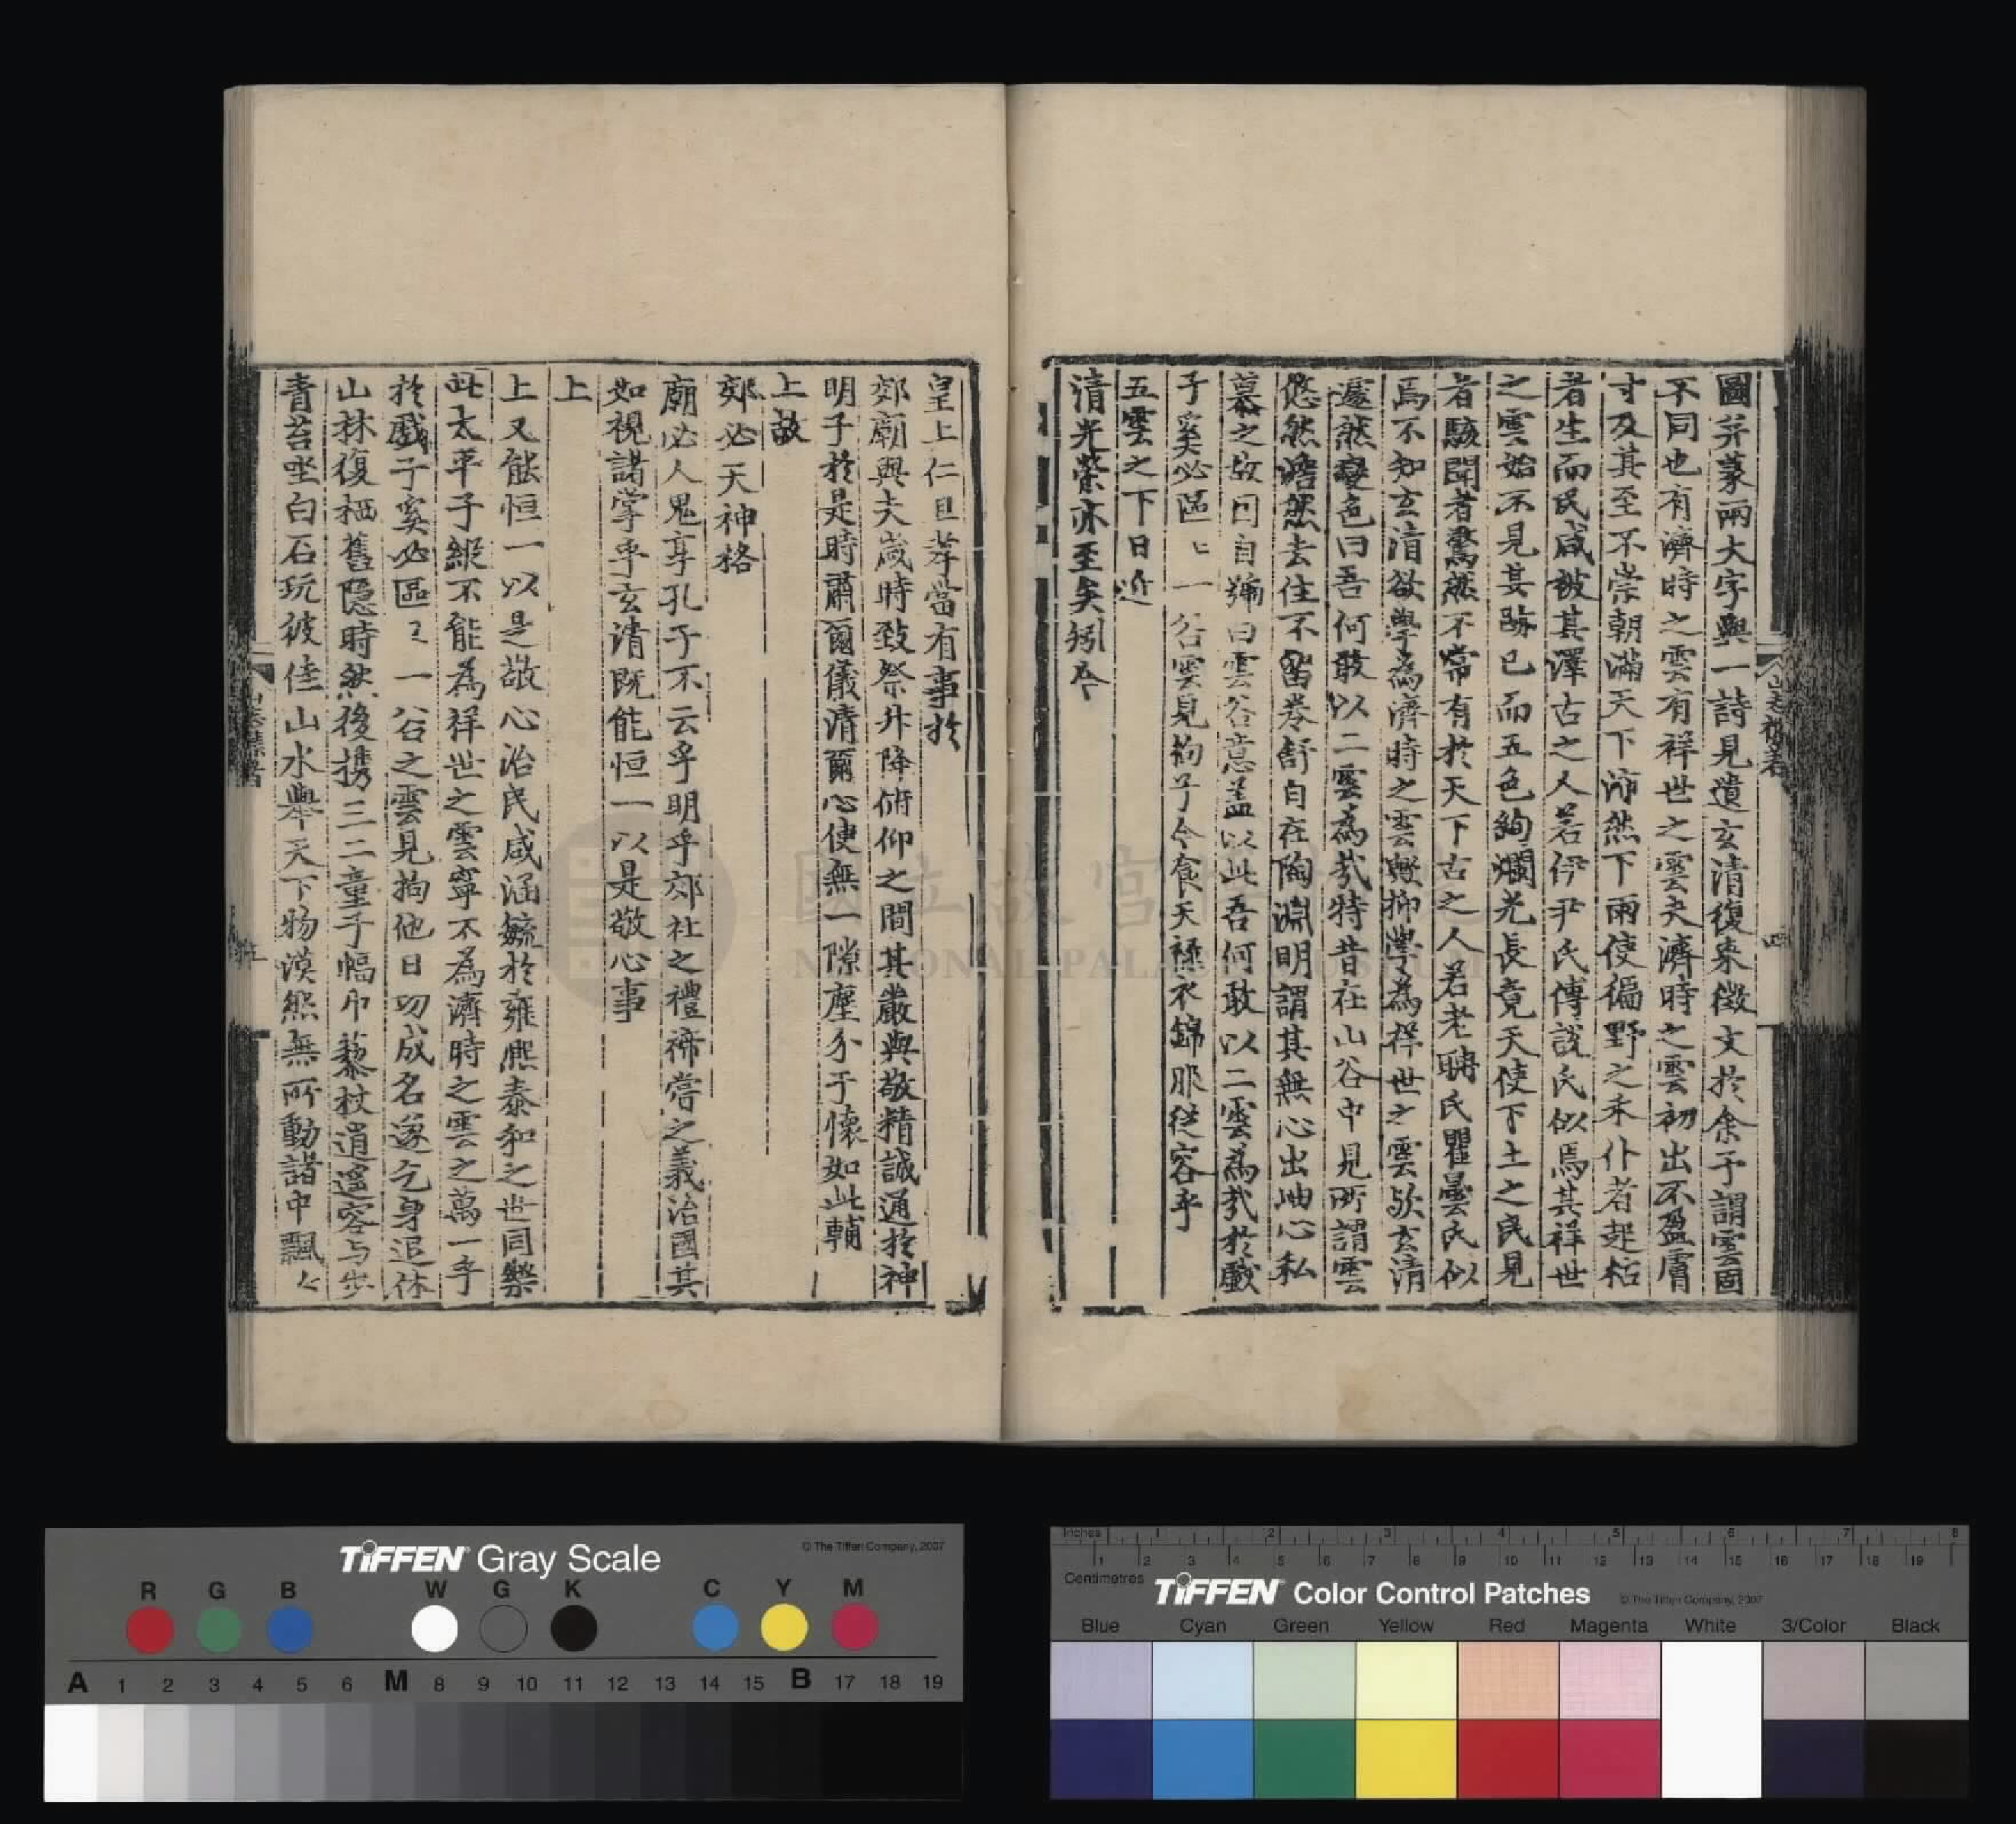 圖并篆兩大字與一詩見遺玄清復來徵文於余予謂雲固
不同也有濟時之雲有祥世之雲夫濟時之雲初出不盈膚
寸及其至不崇朝滿天下沛然下雨使徧野之禾仆者起枯
者生而民咸被其澤古之人若伊尹氏傅說氏似焉其祥世
之雲始不見其跡已而五色絢爛光長竟天使下土之民見
者駭聞者驚然不常有於天下古之人若老聃氏瞿曇氏似
焉不知玄清欲學為濟時之雲歟抑學為祥世之雲歟玄清
遽然變色曰吾何敢以二雲為哉特昔在山谷中見所謂雲
悠然澹然去住不留卷舒自在陶淵明謂其無心出岫心私
慕之故因自號曰雲谷意蓋以此吾何敢以二雲為哉於戲
子奚必區〻一谷雲見拘子今食天祿衣錦服從容乎
五雲之下日近
清光榮亦至矣矧今
皇上仁且孝當有事於
郊廟與夫歲時致祭升降俯仰之間其嚴與敬精誠通於神
明子於是時肅爾儀清爾心使無一隙塵介于懷如此輔
上故
郊必天神格
廟必人鬼享孔子不云乎明乎郊社之禮禘嘗之義治國其
如視諸掌乎玄清既能恒一以是敬心事
上
上又能恒一以是敬心治民咸涵毓於雍熙泰和之世同樂
此太平子縱不能為祥世之雲寧不為濟時之雲之萬一乎
於戲子奚必區〻一谷之雲見拘他日功成名遂乞身退休
山林復栖舊隱時然後携三二童子幅巾藜杖逍遥容与步
青苔坐白石玩彼佳山水舉天下物漠然無所動諸中飄〻
四
國立故宮
NATIONAL PALACE MUSEUM
TIFFEN Gray Scale
© The Tiffen Company, 2007
R G B W G K C Y M
A 1 2 3 4 5 6 M 8 9 10 11 12 13 14 15 B 17 18 19
Inches 1 2 3 4 5 6 7 8
1 2 3 4 5 6 7 8 9 10 11 12 13 14 15 16 17 18 19
Centimetres
TIFFEN Color Control Patches
© The Tiffen Company, 2007
Blue Cyan Green Yellow Red Magenta White 3/Color Black